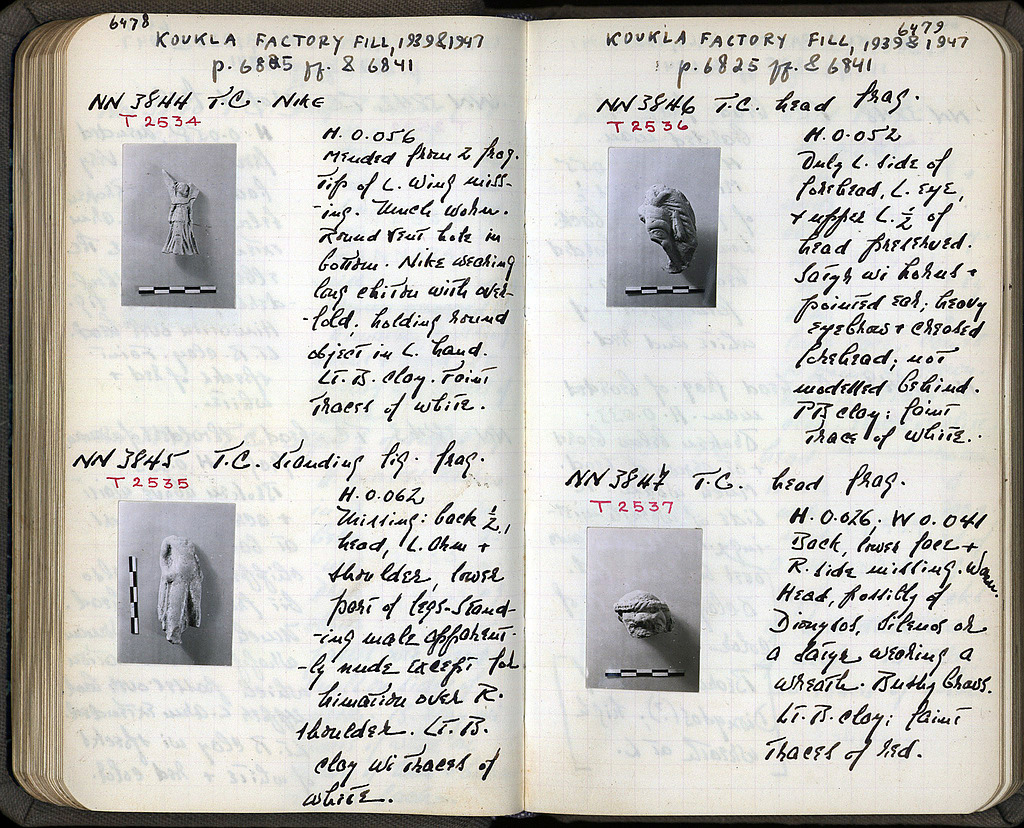 6478
KOUKLA FACTORY FILL, 1939 & 1947
p. 6825 ff. & 6841
NN 3844 T.C. NIKE
T 2534
H. 0.056
Mended from 2 frag.
Tip of L. Wing miss-
-ing. Much worn.
Round vent hole in
bottom. Nike wearing
long chiton with over-
-fold. holding round
object in L. hand.
Lt. B. clay. Faint
traces of white.
NN 3845 T.C. standing fig. frag.
T 2535
H. 0.062
Missing: back ½,
head, L. arm +
shoulder, lower
part of legs. Stand-
-ing male apparent-
-ly nude except for
himation over R.
shoulder. Lt. B.
clay wi traces of
white.
6479
KOUKLA FACTORY FILL, 1939 & 1947
p. 6825 ff. & 6841
NN 3846 T.C. head frag.
T 2536
H. 0.052
Only L. side of
forehead, L. eye,
+ upper L. ½ of
head preserved.
Satyr wi horns +
pointed ear; heavy
eyebrows + creased
forehead; not
modelled behind.
PB clay; faint
trace of white.
NN 3847 T.C. head frag.
T 2537
H. 0.026. W 0.041
Back, lower face +
R. side missing. Worn.
Head, possibly of
Dionysos, Silenos or
a satyr wearing a
wreath. Bushy brows.
Lt. B. clay; faint
traces of red.